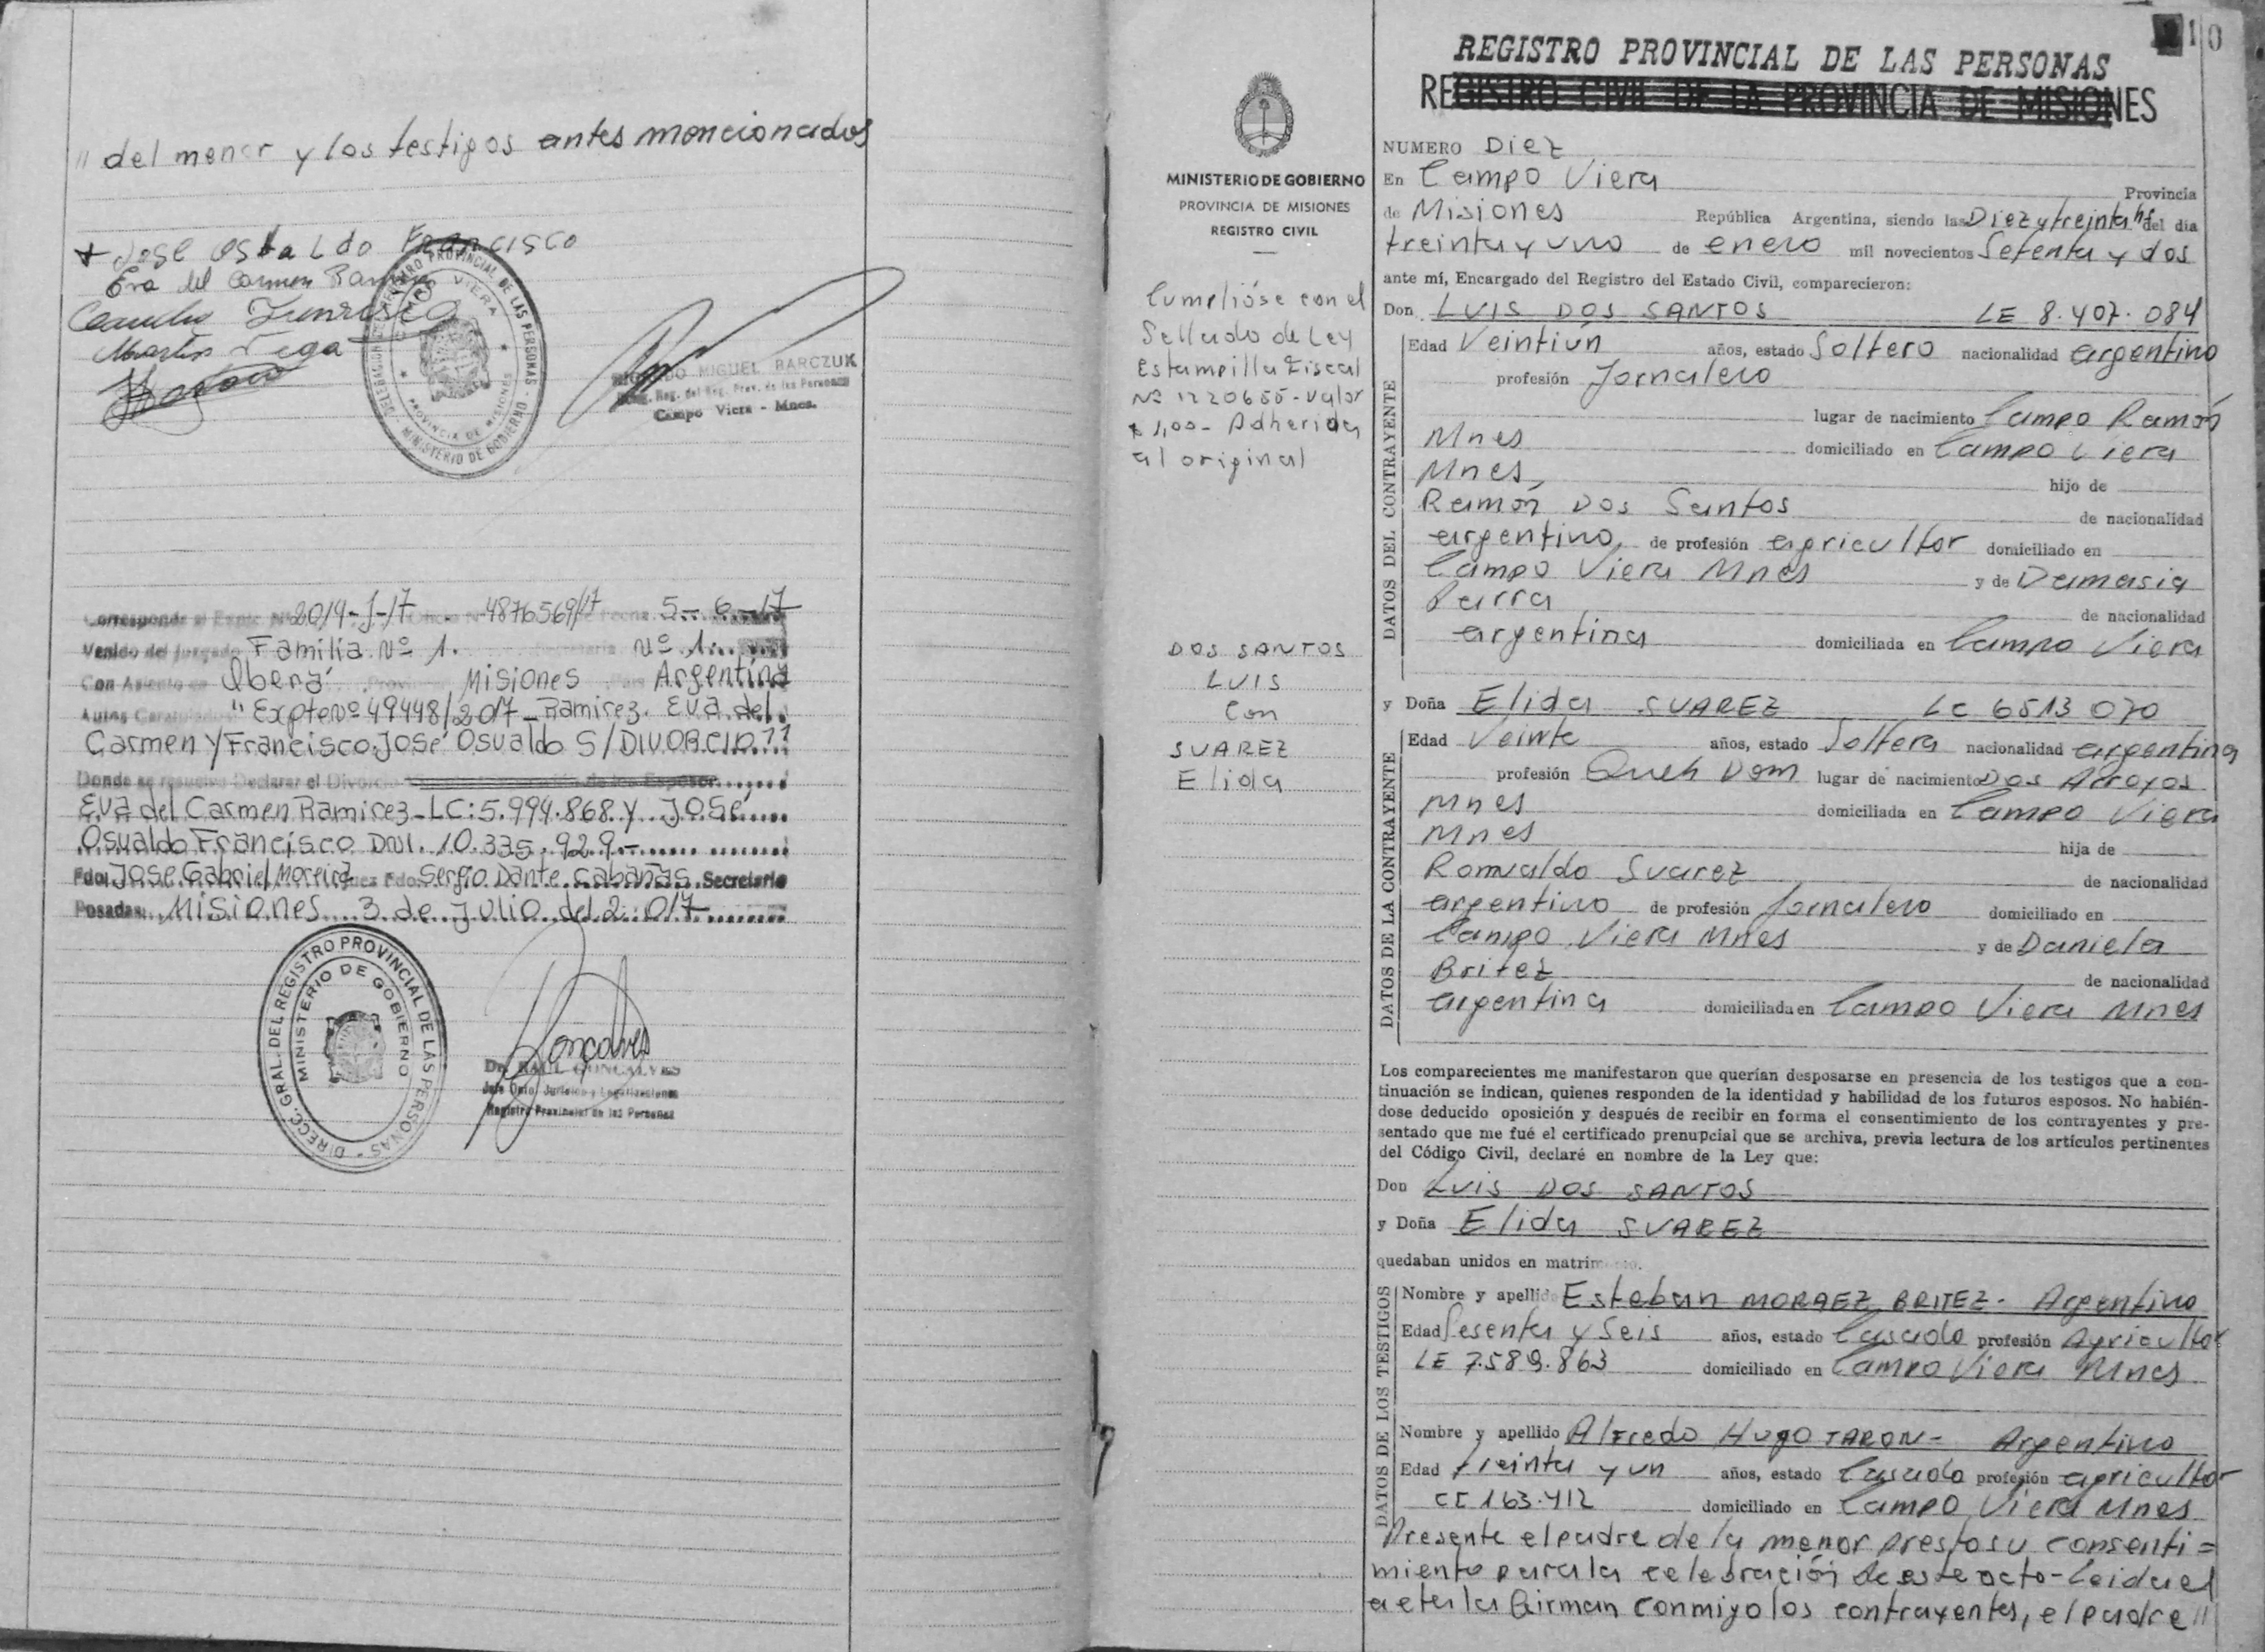 // del menor y los testigos antes mencionados
+ Jose Osbaldo Francisco
Eva del Carmen Ramirez
Martin Vega
DELEGACION REGISTRO PROVINCIAL DE LAS PERSONAS - MINISTERIO DE GOBIERNO -
CAMPO VIERA
PROVINCIA DE MISIONES
MIGUEL BARCZUK
Reg. del Reg. Prov. de las Personas
Campo Viera - Mnes.
Corresponde al Expte Nº 2014-J-17 4876569/17 Fecha 5-6-17
Venido del Juzgado Familia Nº 1. Secretaria Nº 1.
Con Asiento en Oberá Provincia Misiones Argentina
Autos Caratulados "Expte Nº 49448/2017 - Ramirez. Eva del
Carmen y Francisco José Osvaldo S/DIVORCIO"
Donde se resuelve Declarar el Divorcio de los Esposos
Eva del Carmen Ramirez - LC: 5.994.868 y José
Osvaldo Francisco DNI. 10.335.929.-
Fdo: Jose Gabriel Moreira Juez Fdo: Sergio Dante Cabañas Secretario
Posadas: Misiones 3 de Julio del 2.017
DIRECC. GRAL. DEL REGISTRO PROVINCIAL DE LAS PERSONAS -
MINISTERIO DE GOBIERNO
Goncalves
Dr. RAUL GONCALVES
Jefe Dpto. Jurídico y Legalizaciones
Registro Provincial de las Personas
10
REGISTRO PROVINCIAL DE LAS PERSONAS
REGISTRO CIVIL DE LA PROVINCIA DE MISIONES
MINISTERIO DE GOBIERNO
PROVINCIA DE MISIONES
REGISTRO CIVIL
Cumplióse con el
Sellado de Ley
Estampilla Fiscal
Nº 1220655 - valor
$ 1,00 - Adherida
al original
DOS SANTOS
LUIS
Con
SUAREZ
Elida
NUMERO Diez
En Campo Viera Provincia
de Misiones República Argentina, siendo las Diez y treinta hs del día
treinta y uno de enero mil novecientos Setenta y dos
ante mí, Encargado del Registro del Estado Civil, comparecieron:
Don LUIS DOS SANTOS LE 8.407.084
DATOS DEL CONTRAYENTE
Edad Veintiun años, estado Soltero nacionalidad argentino
profesión Jornalero
lugar de nacimiento Campo Ramón
Mnes domiciliado en Campo Viera
Mnes, hijo de
Ramón Dos Santos de nacionalidad
argentino, de profesión agricultor domiciliado en
Campo Viera Mnes y de Damasia
Parra de nacionalidad
argentina domiciliada en Campo Viera
y Doña Elida SUAREZ LC 6513 070
DATOS DE LA CONTRAYENTE
Edad Veinte años, estado Soltera nacionalidad argentina
profesión Queh Dom lugar de nacimiento Dos Arroyos
Mnes domiciliada en Campo Viera
Mnes hija de
Romualdo Suarez de nacionalidad
argentino de profesión Jornalero domiciliado en
Campo Viera Mnes y de Daniela
Britez de nacionalidad
argentina domiciliada en Campo Viera Mnes
Los comparecientes me manifestaron que querían desposarse en presencia de los testigos que a con-
tinuación se indican, quienes responden de la identidad y habilidad de los futuros esposos. No habién-
dose deducido oposición y después de recibir en forma el consentimiento de los contrayentes y pre-
sentado que me fué el certificado prenupcial que se archiva, previa lectura de los artículos pertinentes
del Código Civil, declaré en nombre de la Ley que:
Don LUIS DOS SANTOS
y Doña Elida SUAREZ
quedaban unidos en matrimonio.
DATOS DE LOS TESTIGOS
Nombre y apellido Esteban MORAEZ BRITEZ - Argentino
Edad Sesenta y Seis años, estado Casado profesión Agricultor
LE 7.589.863 domiciliado en Campo Viera Mnes
Nombre y apellido Alfredo Hugo TARON - Argentino
Edad treinta y un años, estado Casado profesión agricultor
CI 163.412 domiciliado en Campo Viera Mnes
Presente el padre de la menor presto su consenti=
miento para la celebración de este acto - Leida el
acta la firman conmigo los contrayentes, el padre //